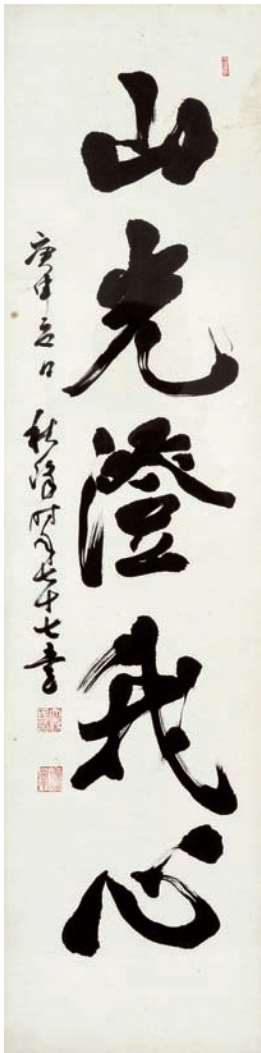 山光澄我心
庚申 日 秋 時年七十七書